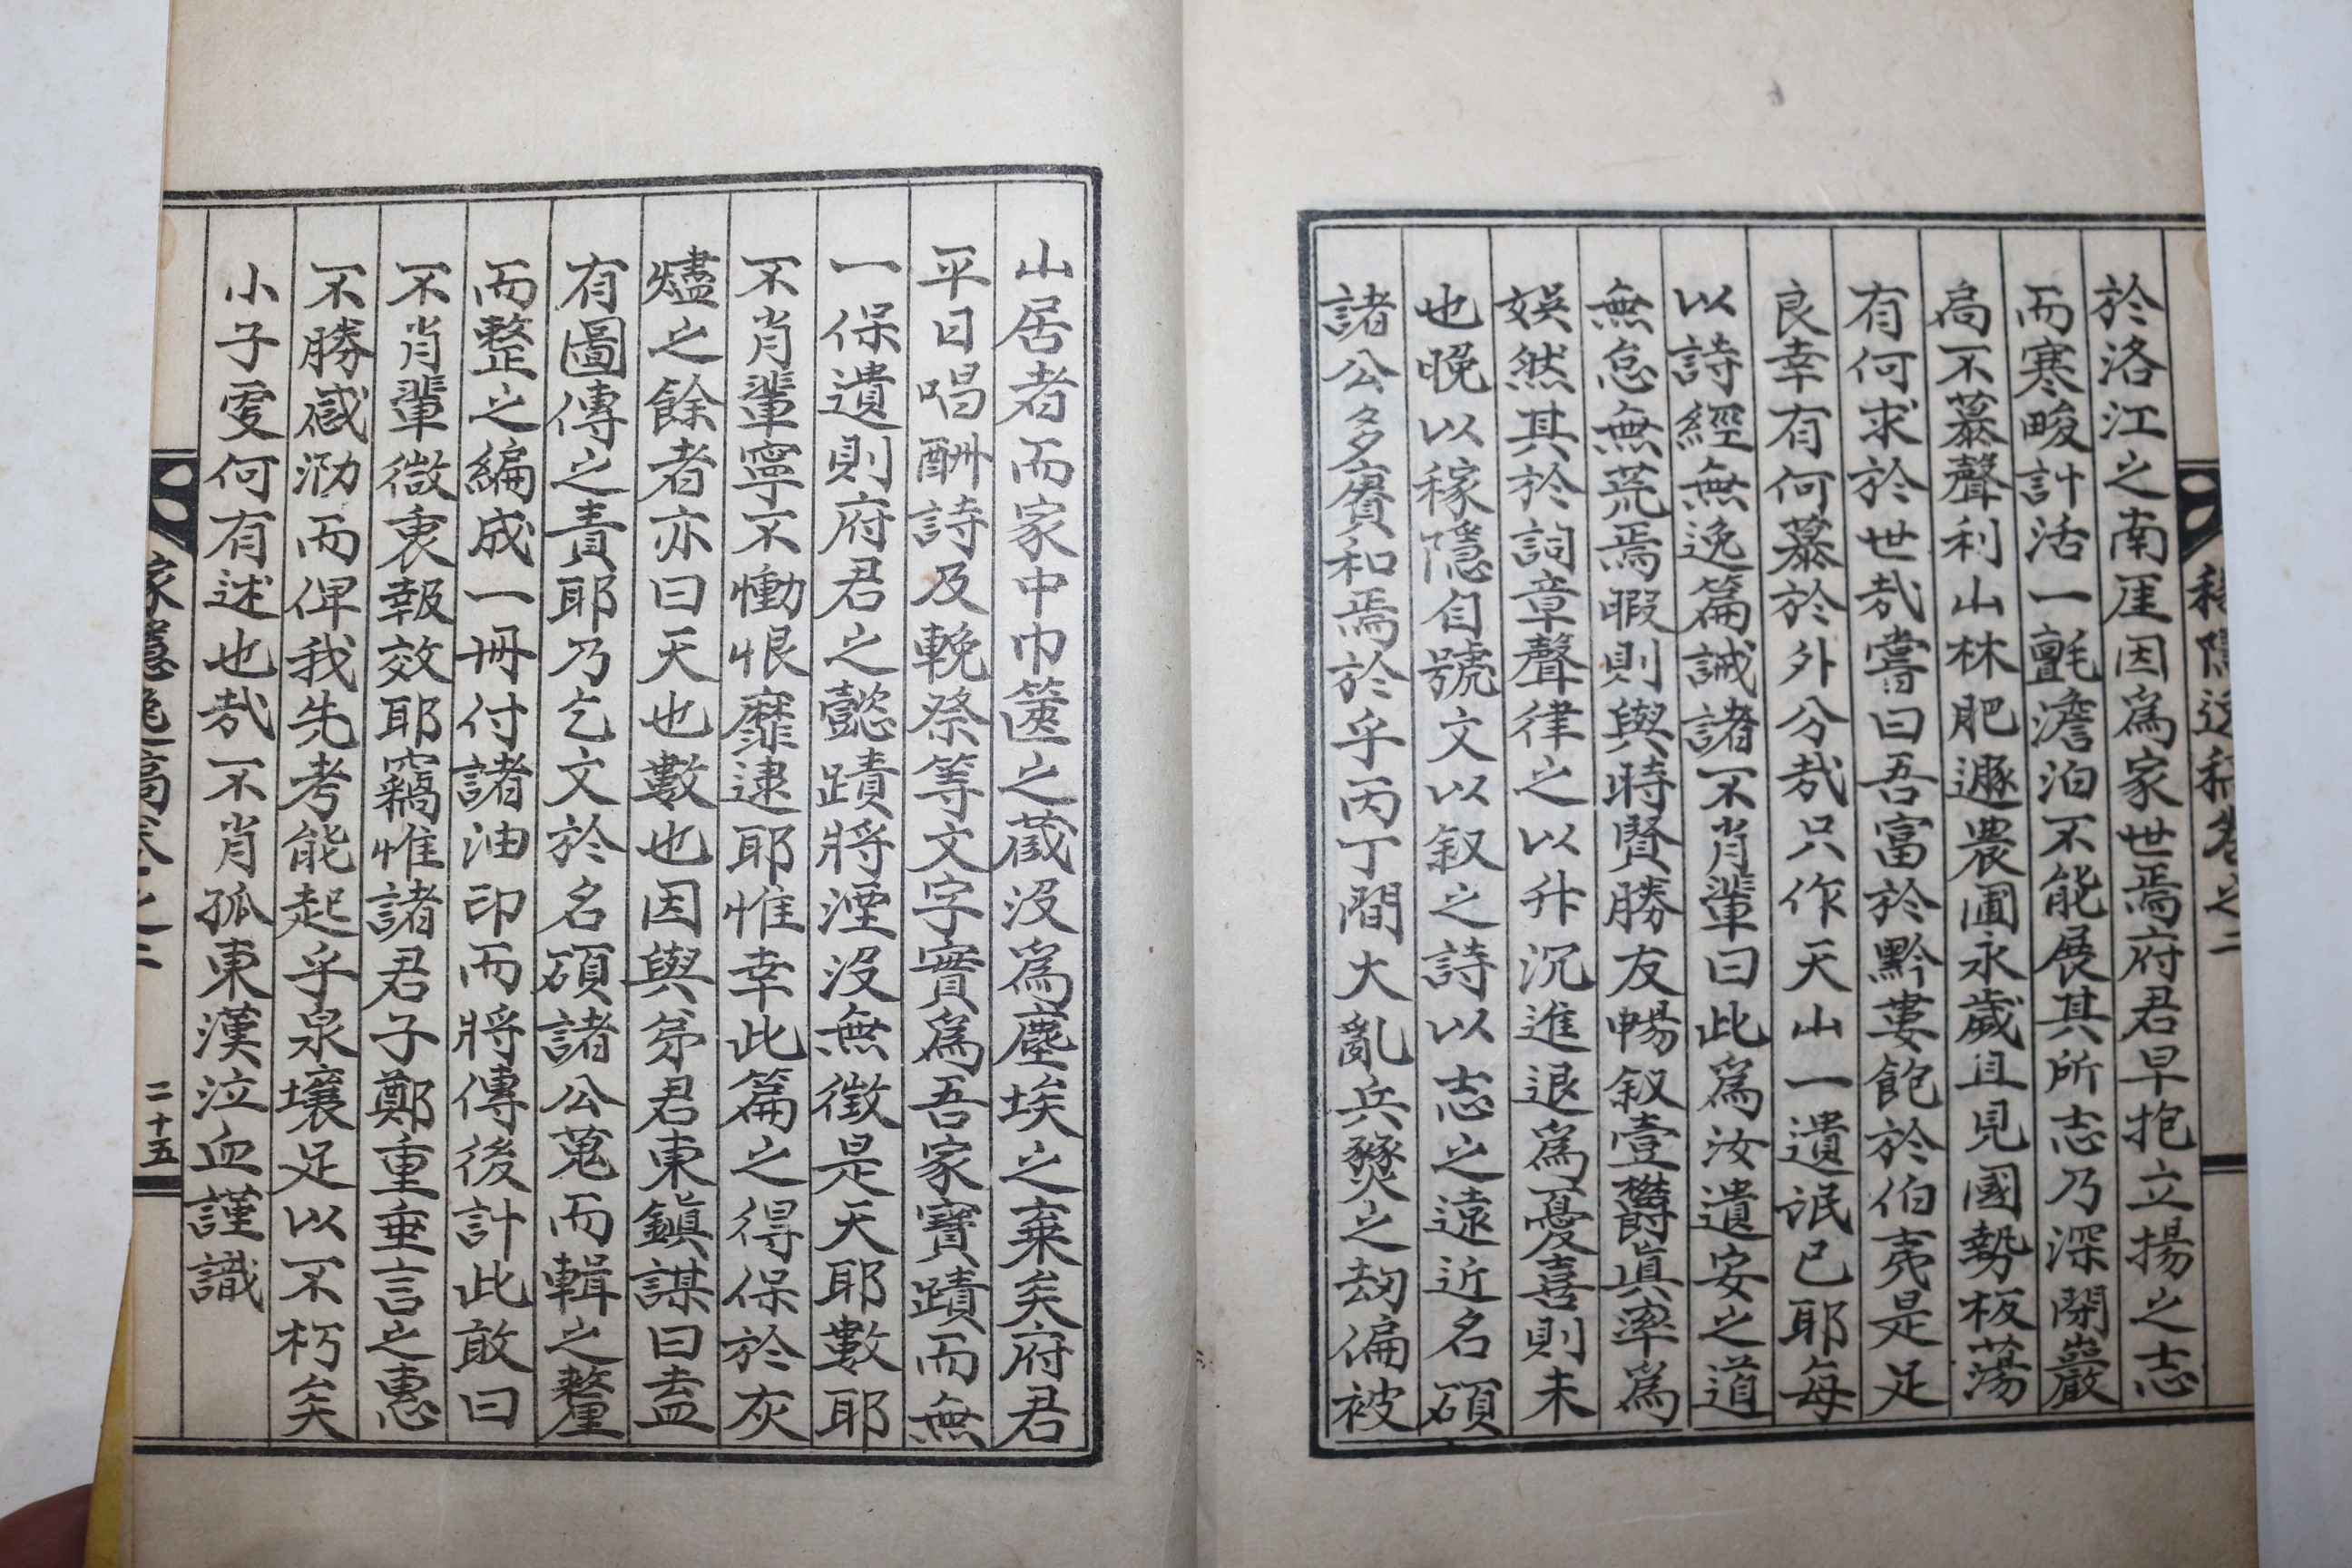 稼隱逸稿卷之二
於洛江之南厓因爲家世焉府君早抱立揚之志
而寒畯計活一氈澹泊不能展其所志乃深閉巖
扃不慕聲利山林肥遯農圃永歲且見國勢板蕩
有何求於世哉嘗曰吾富於黔婁飽於伯夷是足
良幸有何慕於外分哉只作天山一遺氓已耶每
以詩經無逸篇誡諸不肖輩曰此爲汝遺安之道
無怠無荒焉暇則與時賢勝友暢叙壹欝眞率爲
娛然其於詞章聲律之以升沉進退爲憂喜則未
也晩以稼隱自號文以叙之詩以志之遠近名碩
諸公多賡和焉於乎丙丁間大亂兵燹之刼偏被
山居者而家中巾篋之蔵没爲塵埃之棄矣府君
平日唱酬詩及輓祭等文字實爲吾家寶蹟而無
一保遺則府君之懿蹟將湮没無徵是天耶數耶
不肖輩寧不慟恨靡逮耶惟幸此篇之得保於灰
燼之餘者亦曰天也數也因與弟君東鎭謀曰盍
有圖傳之責耶乃乞文於名碩諸公蒐而輯之釐
而整之編成一冊付諸油印而將傳後計此敢曰
不肖輩微衷報效耶竊惟諸君子鄭重垂言之惠
不勝感泐而俾我先考能起乎泉壤足以不朽矣
小子更何有述也哉不肖孤東漢泣血謹識
稼隱逸稿卷之二
二十五